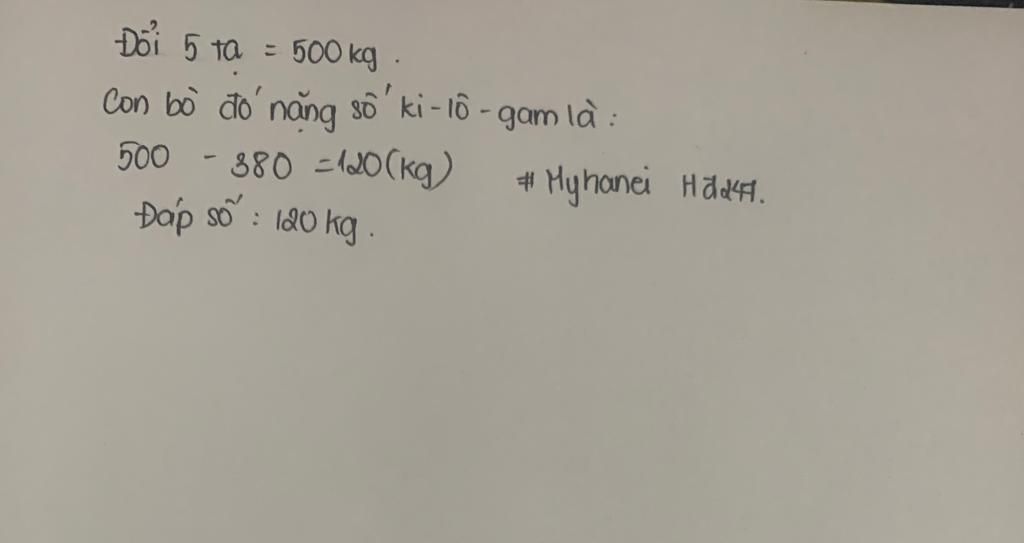 Đổi 5 tạ = 500 kg.
Con bò đó nặng số ki-lô-gam là:
500 - 380 = 120 (kg)
# Myhanei
Đáp số: 120 kg.